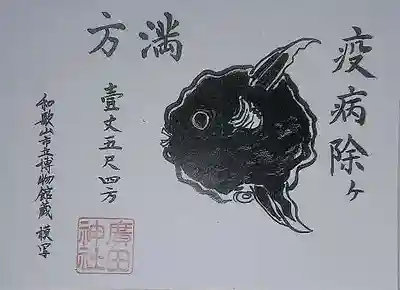 疫病除ヶ
満方
壹丈五尺四方
和歌山市立博物館蔵 模写
廣田神社